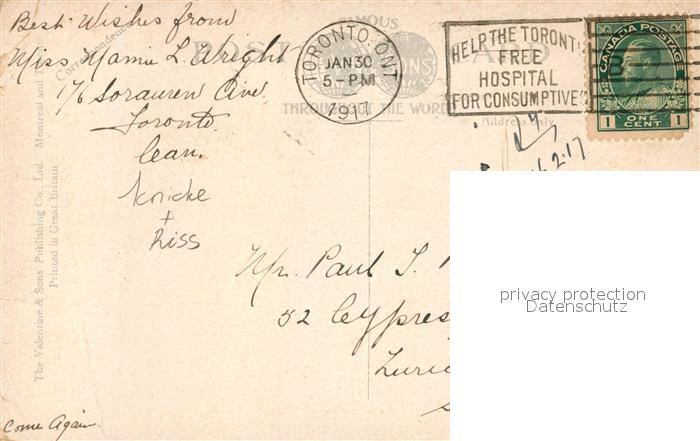 Best Wishes from
Miss Mamie L. Wright
176 Sorauren Ave.
Toronto.
Can.
knicke
+
Riss
Correspondence
FAMOUS
POST CARD
THROUGHOUT THE WORLD
Address Only
TORONTO. ONT
JAN 30
5 - PM
1917
HELP THE TORONTO
FREE
HOSPITAL
FOR CONSUMPTIVES
CANADA POSTAGE
1 ONE CENT 1
2.17
Mr. Paul T.
52 Cypres
Zuric
privacy protection
Datenschutz
The Valentine & Sons Publishing Co., Ltd. Montreal and T
Printed in Great Britain
Come Again.